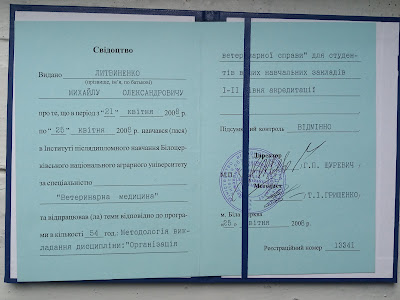 Свідоцтво
Видано ЛИТВИНЕНКО
(прізвище, ім'я, по батькові)
МИХАЙЛУ ОЛЕКСАНДРОВИЧУ
про те, що в період з "21" квітня 2008 р.
по "25" квітня 2008 р. навчався (лася)
в Інституті післядипломного навчання Білоцер-
ківського національного аграрного університету
за спеціальністю
"Ветеринарна медицина"
та відпрацював (ла) теми відповідно до програ-
ми в кількості 54 год.: Методологія вик-
ладання дисципліни:"Організація
ветеринарної справи" для студен-
тів вищих навчальних закладів
І-ІІ рівня акредитації
Підсумковий контроль ВІДМІННО
Директор
Г.П. ЦУРЕВИЧ
М.П.
Методист
Т.І.ГРИЗЕНКО
м. Біла Церква
25. квітня 2008 р.
Реєстраційний номер 12241